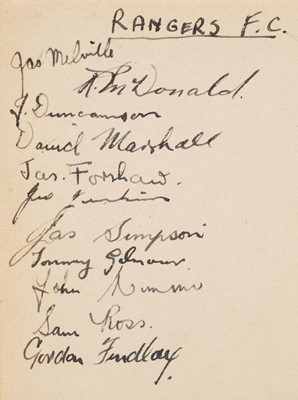 RANGERS F.C.
Jas Melville
R. McDonald.
J. Duncanson
David Marshall
Jas. Forshaw.
Jas Simpson
Tommy Gilmour
John Nimmo
Sam Ross.
Gordon Findlay.